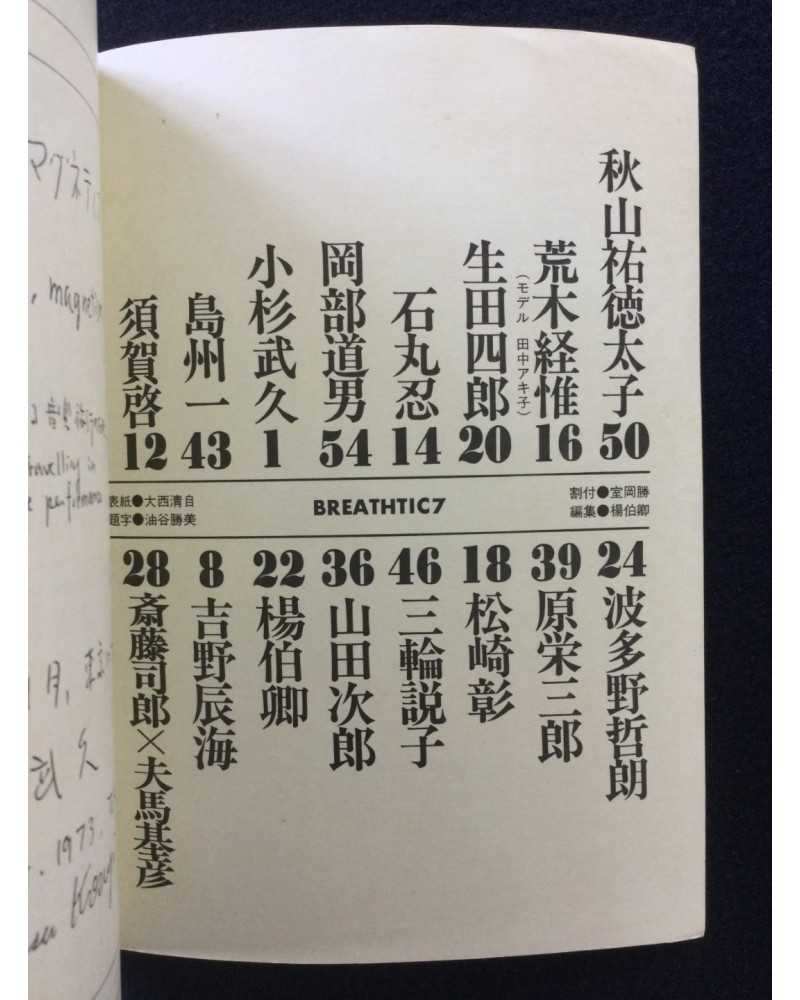 マグネティ
, magnetic
travelling in
月, 東京
武久
. 1973.
秋山祐徳太子 50
荒木経惟 16
(モデル 田中アキ子)
生田四郎 20
石丸忍 14
岡部道男 54
小杉武久 1
島州一 43
須賀啓 12
割付●室岡勝
編集●楊伯卿
BREATHTIC7
表紙●大西清自
題字●油谷勝美
24 波多野哲朗
39 原栄三郎
18 松崎彰
46 三輪説子
36 山田次郎
22 楊伯卿
8 吉野辰海
28 斎藤司郎×夫馬基彦